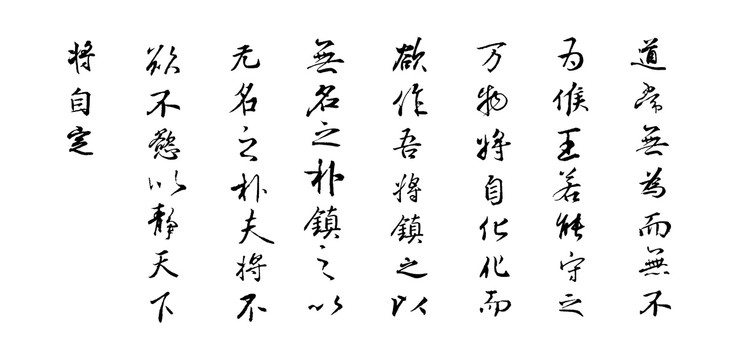 道常無為而無不
为侯王若能守之
万物将自化化而
欲作吾将鎮之以
無名之朴鎮之以
无名之朴夫将不
欲不慾以靜天下
将自定